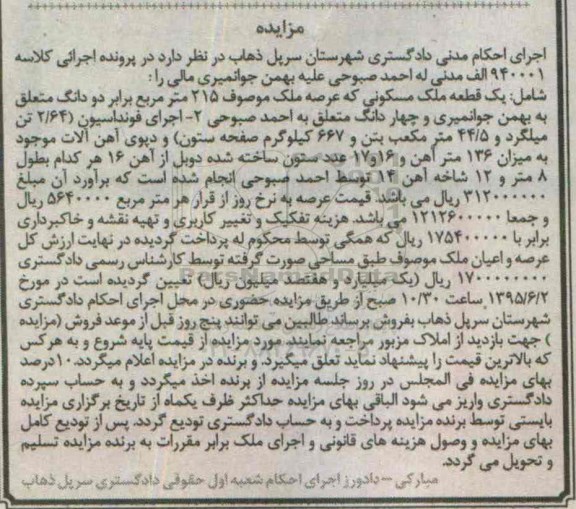 مزایده
اجرای احکام مدنی دادگستری شهرستان سرپل ذهاب در نظر دارد در پرونده اجرائی کلاسه
۹۴۰۰۰۱ الف مدنی له احمد صبوحی علیه بهمن جوانمیری مالی را :
شامل: یک قطعه ملک مسکونی که عرصه ملک موصوف ۲۱۵ متر مربع برابر دو دانگ متعلق
به بهمن جوانمیری و چهار دانگ متعلق به احمد صبوحی ۲- اجرای فونداسیون (۲/۶۴ تن
میلگرد و ۴۴/۵ متر مکعب بتن و ۶۶۷ کیلوگرم صفحه ستون) و دپوی آهن آلات موجود
به میزان ۱۳۶ متر آهن و ۱۶و۱۷ عدد ستون ساخته شده دوبل از آهن ۱۶ هر کدام بطول
۸ متر و ۱۲ شاخه آهن ۱۴ توسط احمد صبوحی انجام شده است که برآورد آن مبلغ
۳۱۲۰۰۰۰۰۰ ریال می باشد. قیمت عرصه به نرخ روز از قرار هر متر مربع ۵۶۴۰۰۰۰ ریال
و جمعا ۱۲۱۲۶۰۰۰۰۰ می باشد. هزینه تفکیک و تغییر کاربری و تهیه نقشه و خاکبرداری
برابر با ۱۷۵۴۰۰۰۰۰ ریال که همگی توسط محکوم له پرداخت گردیده در نهایت ارزش کل
عرصه و اعیان ملک موصوف طبق مساحی صورت گرفته توسط کارشناس رسمی دادگستری
۱۷۰۰۰۰۰۰۰۰ ریال (یک میلیارد و هفتصد میلیون ریال) تعیین گردیده است در مورخ
۱۳۹۵/۶/۲ ساعت ۱۰/۳۰ صبح از طریق مزایده حضوری در محل اجرای احکام دادگستری
شهرستان سرپل ذهاب بفروش برساند طالبین می توانند پنج روز قبل از موعد فروش (مزایده
) جهت بازدید از املاک مزبور مراجعه نمایند. مورد مزایده از قیمت پایه شروع و به هرکس
که بالاترین قیمت را پیشنهاد نماید تعلق میگیرد و برنده در مزایده اعلام میگردد. ۱۰درصد
بهای مزایده فی المجلس در روز جلسه مزایده از برنده اخذ میگردد و به حساب سپرده
دادگستری واریز می شود الباقی بهای مزایده حداکثر ظرف یکماه از تاریخ برگزاری مزایده
بایستی توسط برنده مزایده پرداخت و به حساب دادگستری تودیع گردد. پس از تودیع کامل
بهای مزایده و وصول هزینه های قانونی و اجرای ملک برابر مقررات به برنده مزایده تسلیم
و تحویل می گردد.
مبارکی – دادورز اجرای احکام شعبه اول حقوقی دادگستری سرپل ذهاب
ParsNamadData